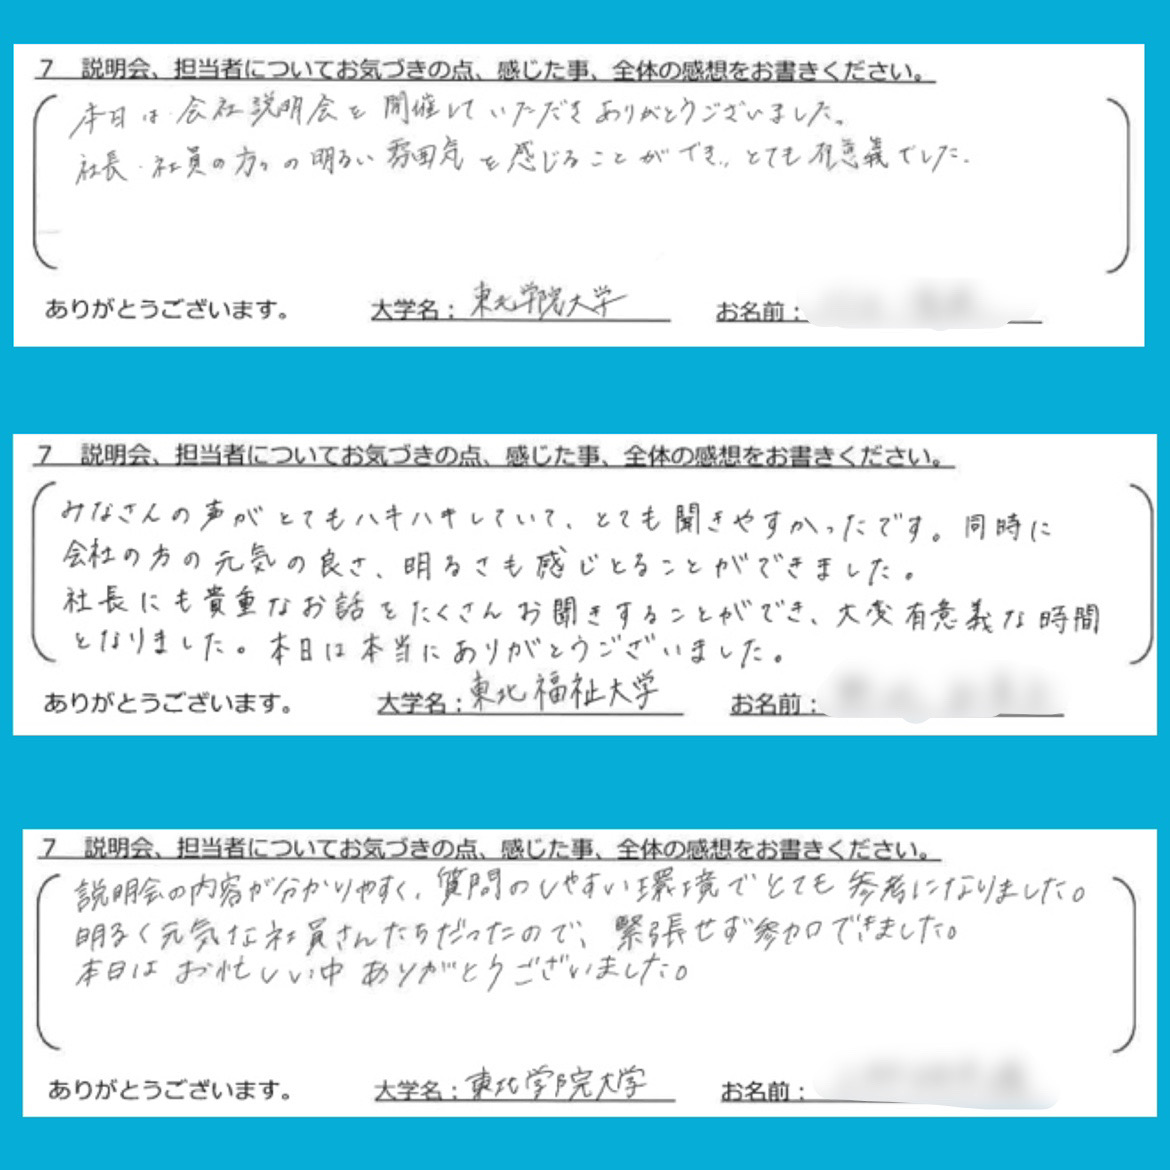 7 説明会、担当者についてお気づきの点、感じた事、全体の感想をお書きください。
本日は会社説明会を開催していただきありがとうございました。
社長・社員の方々の明るい雰囲気を感じることができ、とても有意義でした。
ありがとうございます。 大学名：東北学院大学 お名前：
7 説明会、担当者についてお気づきの点、感じた事、全体の感想をお書きください。
みなさんの声がとてもハキハキしていて、とても聞きやすかったです。同時に
会社の方の元気の良さ、明るさも感じとることができました。
社長にも貴重なお話をたくさんお聞きすることができ、大変有意義な時間
となりました。本日は本当にありがとうございました。
ありがとうございます。 大学名：東北福祉大学 お名前：
7 説明会、担当者についてお気づきの点、感じた事、全体の感想をお書きください。
説明会の内容が分かりやすく、質問のしやすい環境でとても参考になりました。
明るく元気な社員さんたちだったので、緊張せず参加できました。
本日はお忙しい中ありがとうございました。
ありがとうございます。 大学名：東北学院大学 お名前：